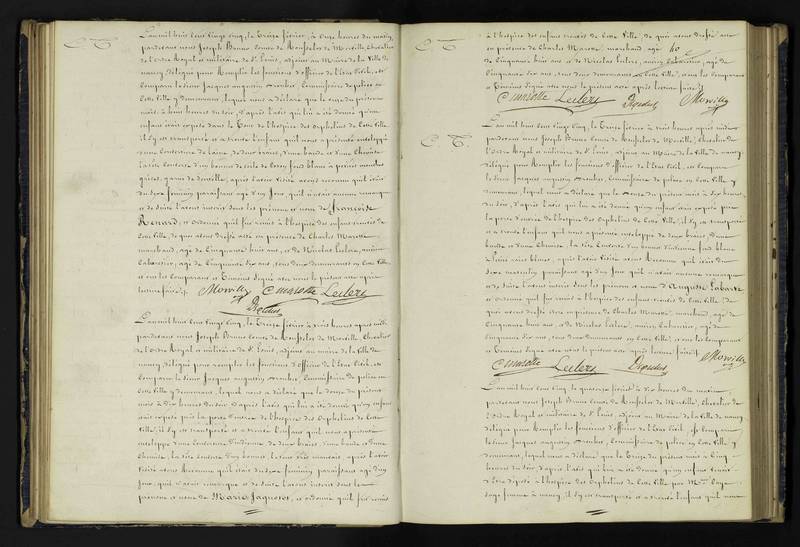 L'an mil huit cent vingt cinq, le treize février, à onze heures du matin,
pardevant nous Joseph Bonno Comte de Monville, Chevalier
de l'Ordre Royal et militaire de St Louis, adjoint au Maire de la Ville de
nancy, délégué pour Remplir les fonctions d'officier de l'Etat Civil, est
Comparu le sieur Jacques augustin Commissaire de police en
Cette Ville y demeurant, lequel nous a déclaré que le onze du présent
mois, à huit heures du soir, d'après l'avis qui lui a été donné qu'un
enfant était exposé dans le Tour de l'hospice des Orphelins de Cette Ville,
il s'y est transporté et a trouvé l'enfant qu'il nous a présenté enveloppé
d'une Couverture de laine, de deux braies, d'une bande et d'une Chemise
la tête Couverte d'un bonnet de toile de fond blanc à petites
garni de dentelle, après l'avoir visité avons reconnu qu'il était
du sexe féminin paraissant âgé d'un Jour, qu'il n'avait aucune remarque
et de suite l'avons inscrit sous les prénom et nom de Françoise
Renard, et ordonné qu'il fut remis à l'hospice des enfants trouvés de
Cette Ville, de quoi avons dressé acte en présence de Charles Marotte
marchand, âgé de Cinquante huit ans, et de Nicolas Leclerc, ancien
Cabaretier, âgé de Cinquante dix ans, tous deux demeurants en Cette Ville,
et ont les Comparant et Témoins Signé avec nous le présent acte après
lecture faite.
Morville C marotte Leclerc
L'an mil huit cent vingt cinq, le Treize février à trois heures après midi
pardevant nous Joseph Bonno Comte de Morville, Chevalier
de l'Ordre Royal et militaire de St Louis, adjoint au maire de la Ville de
nancy, délégué pour remplir les fonctions d'officier de l'Etat Civil, est
Comparu le sieur Jacques augustin Commissaire de police en
Cette Ville y demeurant, lequel nous a déclaré que le douze du présent
mois à Dix heures du soir d'après l'avis qui lui a été donné qu'un enfant
était exposé près la porte d'entrée de l'hospice des Orphelins de Cette
Ville, il s'y est transporté et a trouvé l'enfant qu'il nous a présenté
enveloppé d'une Couverture d'indienne, de deux braies, d'une bande et d'une
Chemise, la tête Couverte d'un bonnet, le tout très mauvais, après l'avoir
visité avons Reconnu qu'il était du sexe féminin paraissant âgé d'un
Jour, qu'il n'avait aucune remarque et de suite l'avons inscrit sous les
prénom et nom de Marie Jaquotot, et ordonné qu'il fut remis
à l'hospice des enfants trouvés de Cette Ville, de quoi avons dressé acte
en présence de Charles Marotte, marchand, âgé
de Cinquante huit ans et de Nicolas Leclerc, ancien Cabaretier, âgé de
Cinquante dix ans, tous deux demeurants en Cette Ville, et ont les Comparant
et Témoins Signé avec nous le présent acte après lecture faite.
C marotte Leclerc Morville
L'an mil huit cent vingt cinq, le Treize février à trois heures après midi
pardevant nous Joseph Bonno Comte de Morville, Chevalier de
l'Ordre Royal et militaire de St Louis, adjoint au maire de la Ville de nancy,
délégué pour Remplir les fonctions d'officier de l'Etat Civil, est Comparu
le sieur Jacques augustin Commissaire de police en Cette Ville y
demeurant, lequel nous a déclaré que le douze du présent mois à Dix heures
du soir, d'après l'avis qui lui a été donné qu'un enfant était exposé près
la porte d'entrée de l'hospice des Orphelins de Cette Ville, il s'y est transporté
et a trouvé l'enfant qu'il nous a présenté, enveloppé de deux braies, d'une
bande et d'une Chemise, la tête Couverte d'un bonnet d'indienne fond blanc
à fleurs, après l'avoir visité avons Reconnu qu'il était du
sexe masculin paraissant âgé d'un Jour qu'il n'avait aucune remarque
et de suite l'avons inscrit sous les prénom et nom d'Auguste Labarre
et ordonné qu'il fut remis à l'hospice des enfants trouvés de Cette Ville, de
quoi avons dressé acte en présence de Charles Marotte, marchand, âgé de
Cinquante huit ans, et de Nicolas Leclerc, ancien Cabaretier, âgé de
Cinquante dix ans, tous deux demeurants en Cette Ville, et ont les Comparant
et Témoins Signé avec nous le présent acte après lecture faite.
C marotte Leclerc Morville
L'an mil huit cent vingt cinq, le quatorze février à dix heures du matin,
pardevant nous Joseph Bonno Comte de Morville, Chevalier de
l'Ordre Royal et militaire de St Louis, adjoint au Maire de la Ville de nancy
délégué pour Remplir les fonctions d'officier de l'Etat Civil, est Comparu
le sieur Jacques augustin Commissaire de police en Cette Ville y
demeurant, lequel nous a déclaré que le Treize du présent mois à Cinq
heures du soir, d'après l'avis qui lui a été donné qu'un enfant venait
d'être déposé à l'hospice des Orphelins de Cette Ville par Me
sage femme à nancy, il s'y est transporté et a trouvé l'enfant qu'il nous